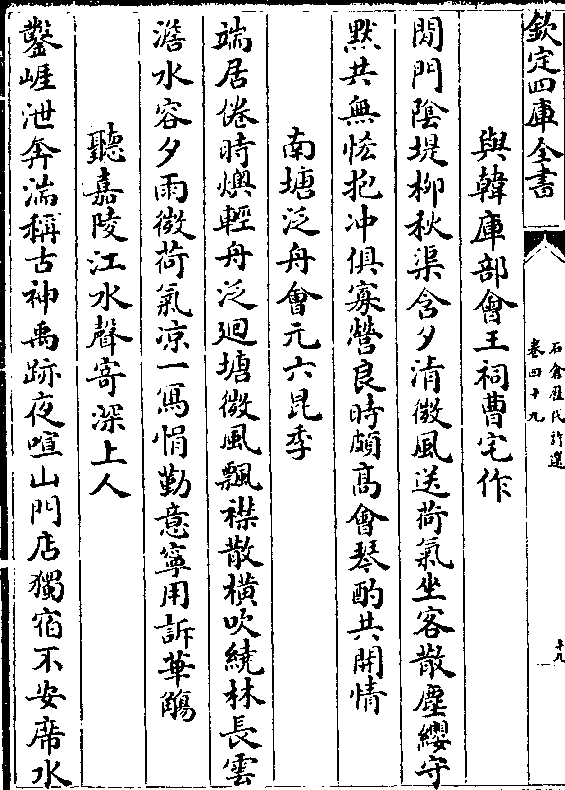 欽定四庫全書
石倉歷代詩選
卷四十九
十九
與韓庫部會王祠曹宅作
閒門陰堤柳秋渠含夕清微風送荷氣坐客散塵纓守
默共無恡抱冲俱寡營良時頗高會琴酌共開情
南塘泛舟會元六昆季
端居倦時燠輕舟泛廻塘微風飄襟散橫吹繞林長雲
澹水容夕雨微荷氣凉一寫悁勤意寧用訴華觴
聽嘉陵江水聲寄深上人
鑿崕泄奔湍稱古神禹跡夜喧山門店獨宿不安席水